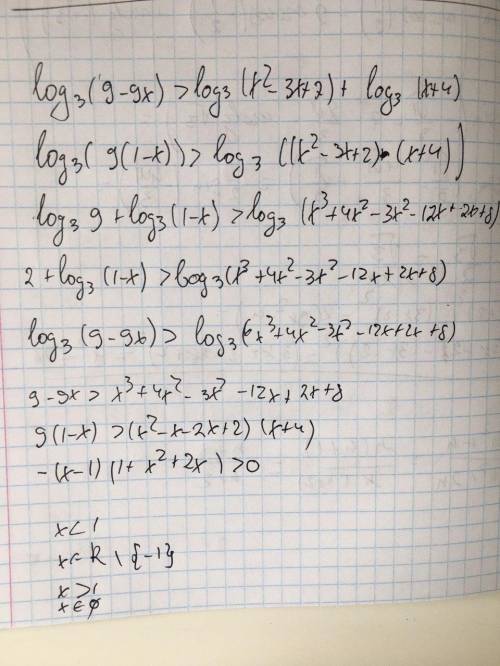 log₃(9-9x) > log₃(x²-3x+2) + log₃(x+4)
log₃(9(1-x)) > log₃((x²-3x+2)·(x+4))
log₃9 + log₃(1-x) > log₃(x³+4x²-3x²-12x+2x+8)
2+log₃(1-x) > log₃(x³+4x²-3x²-12x+2x+8)
log₃(9-9x) > log₃(x³+4x²-3x²-12x+2x+8)
9-9x > x³+4x²-3x²-12x+2x+8
9(1-x) > (x²-x-2x+2)(x+4)
-(x-1)(1+x²+2x) > 0
x < 1
x ∈ R \ {-1}
x > 1
x ∈ ∅